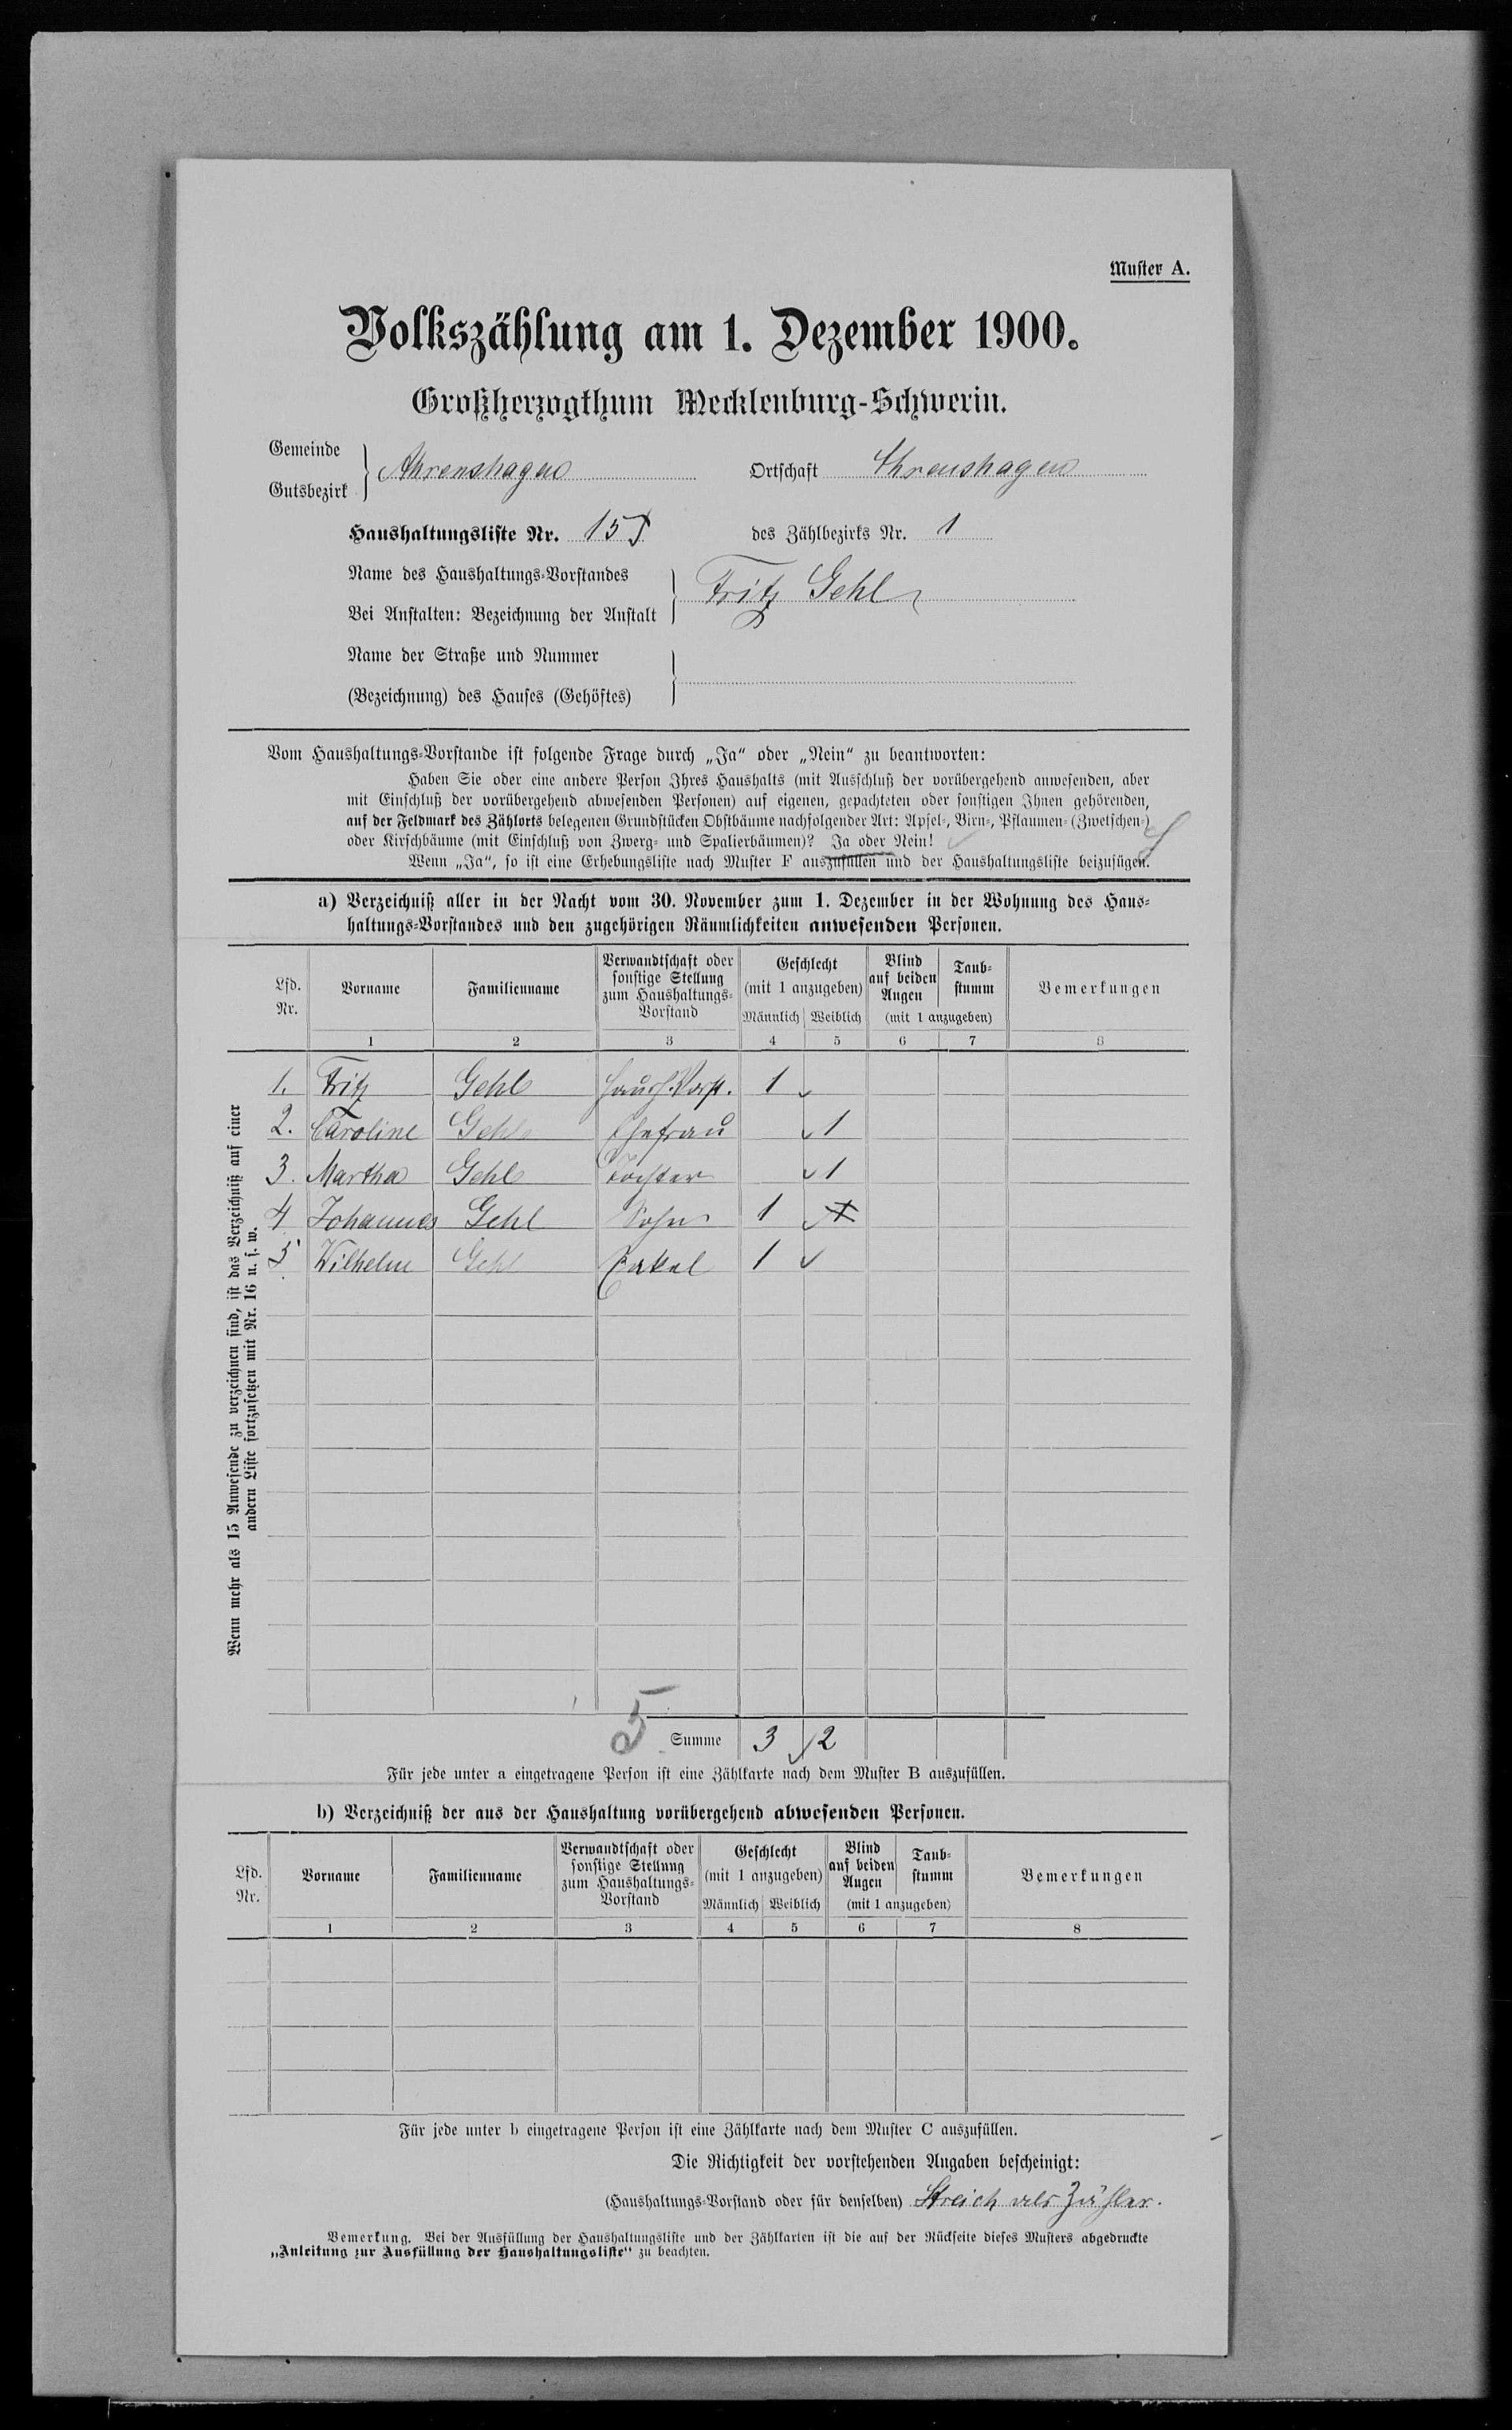 Muster A.
Volkszählung am 1. Dezember 1900.
Großherzogthum Mecklenburg-Schwerin.
Gemeinde
Gutsbezirk } Ahrenshagen Ortschaft Ahrenshagen
Haushaltungsliste Nr. 15 des Zählbezirks Nr. 1
Name des Haushaltungs-Vorstandes
Bei Anstalten: Bezeichnung der Anstalt } Fritz Gehl
Name der Straße und Nummer
(Bezeichnung) des Hauses (Gehöftes) }
Vom Haushaltungs-Vorstande ist folgende Frage durch „Ja“ oder „Nein“ zu beantworten:
Haben Sie oder eine andere Person Ihres Haushalts (mit Ausschluß der vorübergehend anwesenden, aber
mit Einschluß der vorübergehend abwesenden Personen) auf eigenen, gepachteten oder sonstigen Ihnen gehörenden,
auf der Feldmark des Zählorts belegenen Grundstücken Obstbäume nachfolgender Art: Apfel-, Birn-, Pflaumen- (Zwetschen-)
oder Kirschbäume (mit Einschluß von Zwerg- und Spalierbäumen)? Ja oder Nein!
Wenn „Ja“, so ist eine Erhebungsliste nach Muster F auszufüllen und der Haushaltungsliste beizufügen.
a) Verzeichniß aller in der Nacht vom 30. November zum 1. Dezember in der Wohnung des Haus-
haltungs-Vorstandes und den zugehörigen Räumlichkeiten anwesenden Personen.
Lfd. Nr. Vorname Familienname Verwandtschaft oder sonstige Stellung zum Haushaltungs-Vorstand Geschlecht (mit 1 anzugeben) Männlich Weiblich Blind auf beiden Augen Taub-stumm (mit 1 anzugeben) Bemerkungen
1 2 3 4 5 6 7 8
1. Fritz Gehl Haush.Vorst. 1
2. Caroline Gehl Ehefrau 1
3. Martha Gehl Tochter 1
4 Johannes Gehl Sohn 1
5 Wilhelm Gehl Enkel 1
Wenn mehr als 15 Anwesende zu verzeichnen sind, ist das Verzeichniß auf einer
andern Liste fortzusetzen mit Nr. 16 u. s. w.
5 Summe 3 2
Für jede unter a eingetragene Person ist eine Zählkarte nach dem Muster B auszufüllen.
b) Verzeichniß der aus der Haushaltung vorübergehend abwesenden Personen.
Lfd. Nr. Vorname Familienname Verwandtschaft oder sonstige Stellung zum Haushaltungs-Vorstand Geschlecht (mit 1 anzugeben) Männlich Weiblich Blind auf beiden Augen Taub-stumm (mit 1 anzugeben) Bemerkungen
1 2 3 4 5 6 7 8
Für jede unter b eingetragene Person ist eine Zählkarte nach dem Muster C auszufüllen.
Die Richtigkeit der vorstehenden Angaben bescheinigt:
(Haushaltungs-Vorstand oder für denselben) Streich als Zähler.
Bemerkung. Bei der Ausfüllung der Haushaltungsliste und der Zählkarten ist die auf der Rückseite dieses Musters abgedruckte
„Anleitung zur Ausfüllung der Haushaltungsliste“ zu beachten.